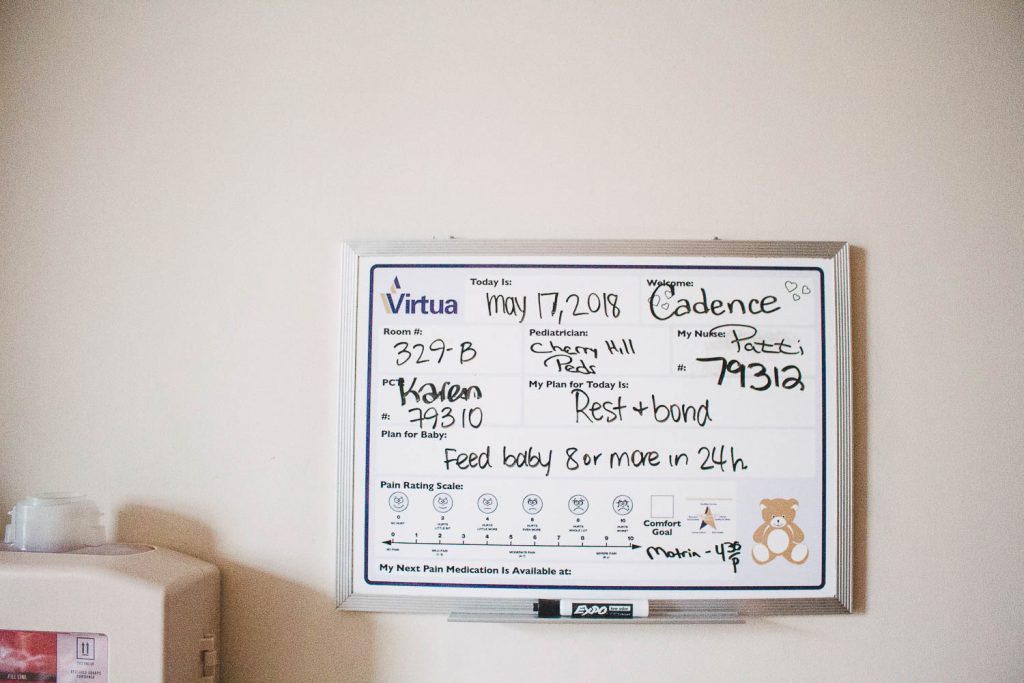 Virtua
Today Is:
may 17, 2018
Welcome:
Cadence
Room #:
329-B
Pediatrician:
Cherry Hill
Peds
My Nurse:
Patti
#:
79312
PCT:
Karen
#: 79310
My Plan for Today Is:
Rest + bond
Plan for Baby:
Feed baby 8 or more in 24h
Pain Rating Scale:
0 2 4 6 8 10
NO HURT
HURTS LITTLE BIT
HURTS LITTLE MORE
HURTS EVEN MORE
HURTS WHOLE LOT
HURTS WORST
0 1 2 3 4 5 6 7 8 9 10
NO PAIN
MILD PAIN
MODERATE PAIN
SEVERE PAIN
Comfort
Goal
Motrin - 430
p
My Next Pain Medication Is Available at:
EXPO
FILL LINE
THIS END UP